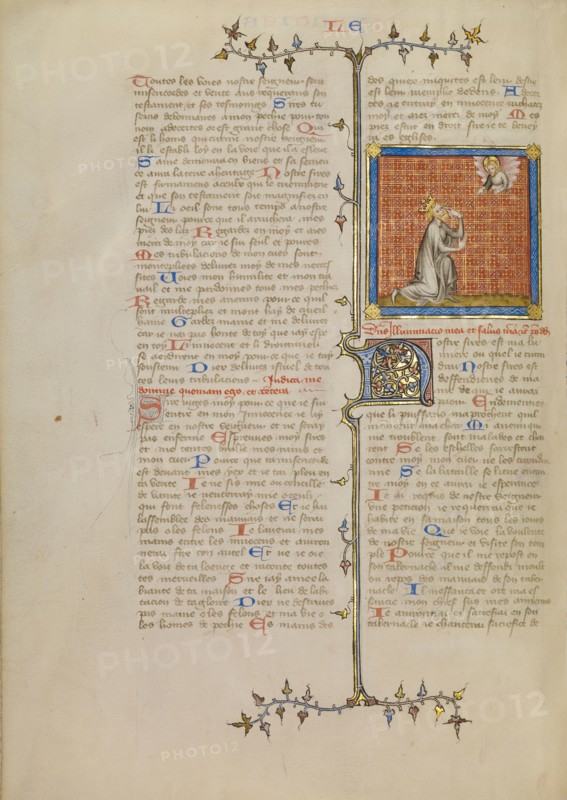 LE
Toutes les voies nostre seigneur sont
misericordes et verite aus requerans son
testament et ses tesmoings Sires tu
seras debonnaires a mon pechie pour ton
nom
est li homs qui craint nostre seigneur
il li establi loy en la voie que il a esleue
Same demourra en biens et sa semen
ce aura la terre a heritage Nostre sires
est firmamens a ceulz qui le criement
et que son testament soit magnifies en
lui Li oeil sont tous temps a nostre
seigneur pource que il arrachera mes
piez des las Regardes en moy et aies
merci de moy car ie sui seul et poures
Mes tribulacions de mon cuer sont
montepliees deliures moy de mes neces
sites Voies mon humilite et mon tra
uail et me pardonnes tous mes pechies
Regarde mes anemis pour ce quil
sont multiplier et mont hay de
haine Gardes mame et me deliures
car ie naie pas honte de toy que iay espe
en toy Li innocent et li droiturier
se aerdirent en moy pour ce que ie tay
soustenu Dieu deliures israel de tou
tes leurs tribulacions Judica me
domine quoniam ego et cetera
Sire iuges moy pour ce que ie sui
entre en mon innocence ie ay
espere en nostre seigneur et ne seray
pas enferme Esprouues moy sires
et me temptes brusle mes rains et
mon cuer Pource que ta misericorde
est deuant mes yex et ie
ta verite Je ne sis mie ou concille
de vanite ie nentreray mie auec
qui font felonesses choses Et ie hai
lassemblee des mauuais et ne serai
pas o les felons Je laueray mes
mains entre les innocens et auiron
neray sire ton autel Et que ie oie
la voie de ta loenge et raconte toutes
tes merueilles Sire iay ame la
biaute de ta maison et le lieu de labi
tacion de ta gloire Dieu ne destruies
pas mame o les felons et ma vie o
les homes de pechie Es mains des
des quiex iniquites est leur destre
est
tes ie entray en innocence rachates
moy et aies merci de moy Mes
piez estut en droit sire ie te beney
ray es eglises
Dns illuminacio mea et salus mea
Nostre sires est ma lu
miere ou quel ie criem
dray Nostre sires est
deffenderres de ma
vie de qui ie auray
paour Endementres
que li nuissant aprochent
Mi anemi qui
me troublent sont malades et chei
rent Se les
contre moy mon cuer ne les craindra
mie Se la bataille se lieue contre
moy on ce auray ie esperance
Je ai requis de nostre seigneur
vne peticion ie requerray que ie
habite en sa maison tous les iours
de ma vie Que ie voie la voulente
de nostre seigneur et visite son tem
ple Pource que il me repost en
son tabernacle il me deffendi
ou repos des mauuais de son taber
nacle Il messauca et ore ma es
sauce mon chief sus mes anemis
Je auironnai et sacrefiai en son
tabernacle ie chanterai sacrefice de